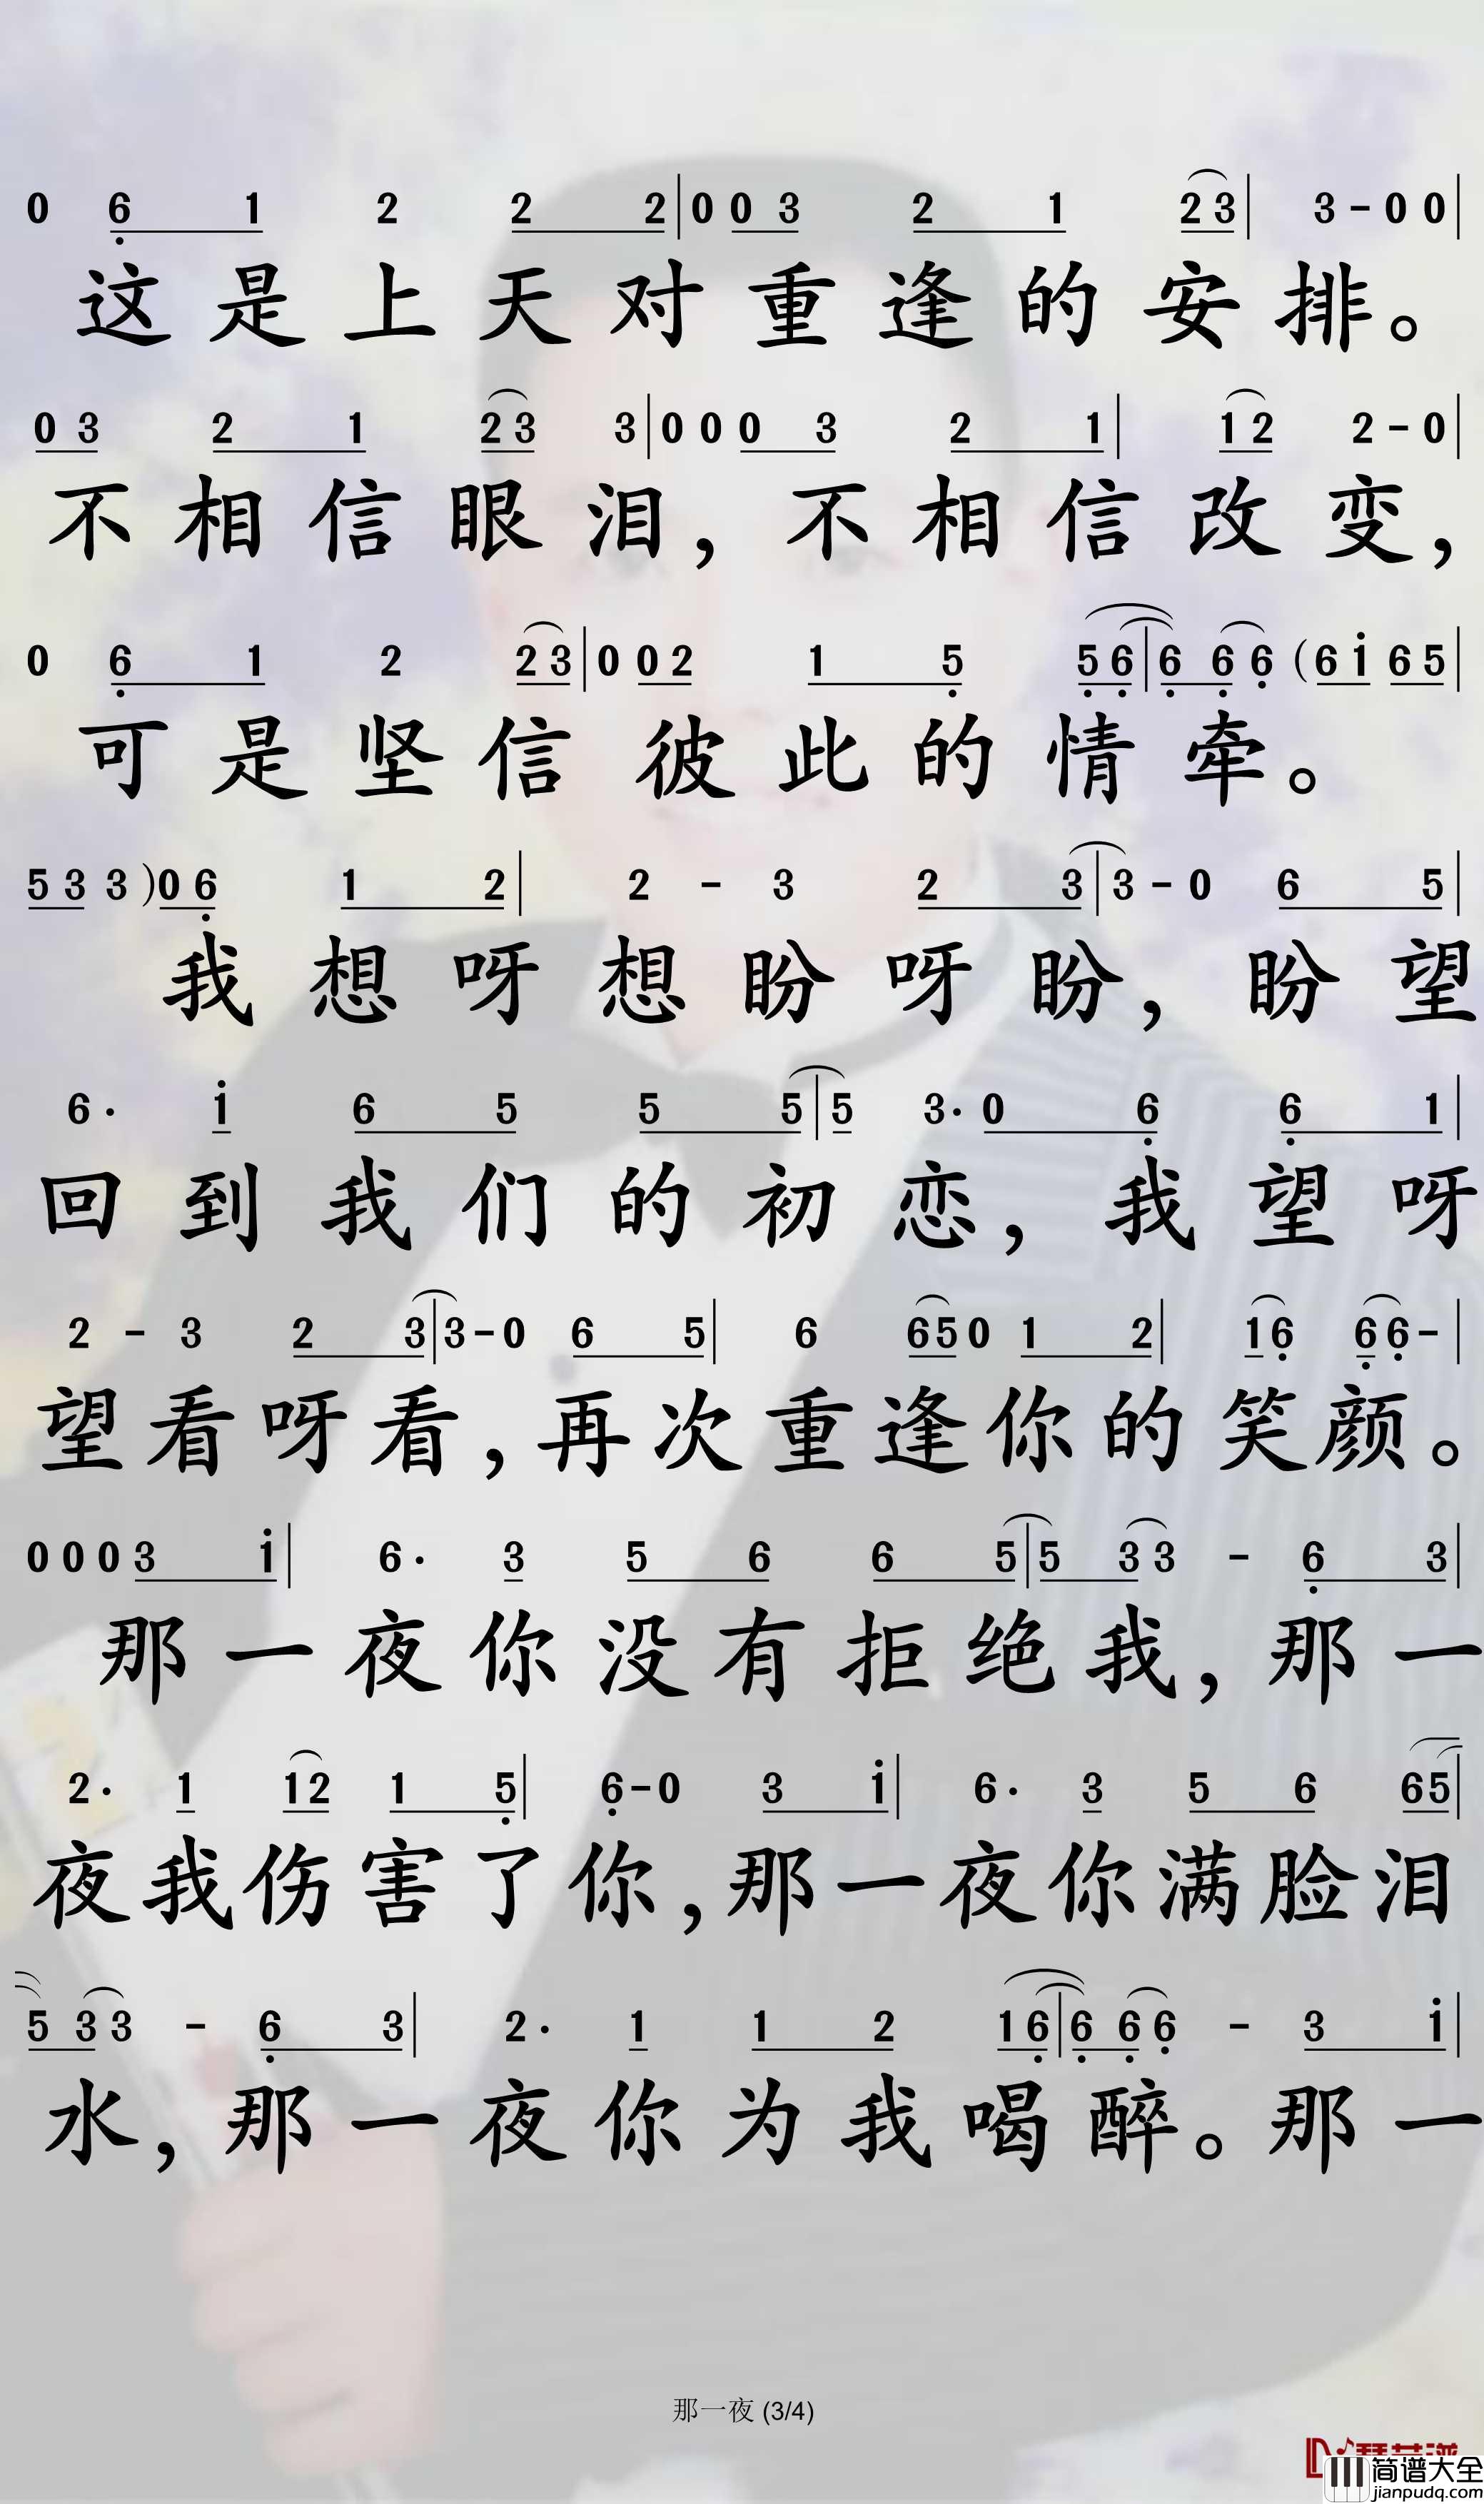 0 6 1 2 2 2|0 0 3 2 1 2 3|3 - 0 0|
这是上天对重逢的安排。
0 3 2 1 2 3 3|0 0 0 3 2 1|1 2 2 - 0|
不相信眼泪,不相信改变,
0 6 1 2 2 3|0 0 2 1 5 5 6|6 6 6 (6 i 6 5|
可是坚信彼此的情牵。
5 3 3 )0 6 1 2|2 - 3 2 3|3 - 0 6 5|
我想呀想盼呀盼,盼望
6· i 6 5 5 5|5 3· 0 6 6 1|
回到我们的初恋,我望呀
2 - 3 2 3|3 - 0 6 5|6 6 5 0 1 2|1 6 6 6 -|
望看呀看,再次重逢你的笑颜。
0 0 0 3 i|6· 3 5 6 6 5|5 3 3 - 6 3|
那一夜你没有拒绝我,那一
2· 1 1 2 1 5|6 - 0 3 i|6· 3 5 6 6 5|
夜我伤害了你,那一夜你满脸泪
5 3 3 - 6 3|2· 1 1 2 1 6|6 6 6 - 3 i|
水,那一夜你为我喝醉。那一
那一夜 (3/4)
简谱大全
jianpudq.com